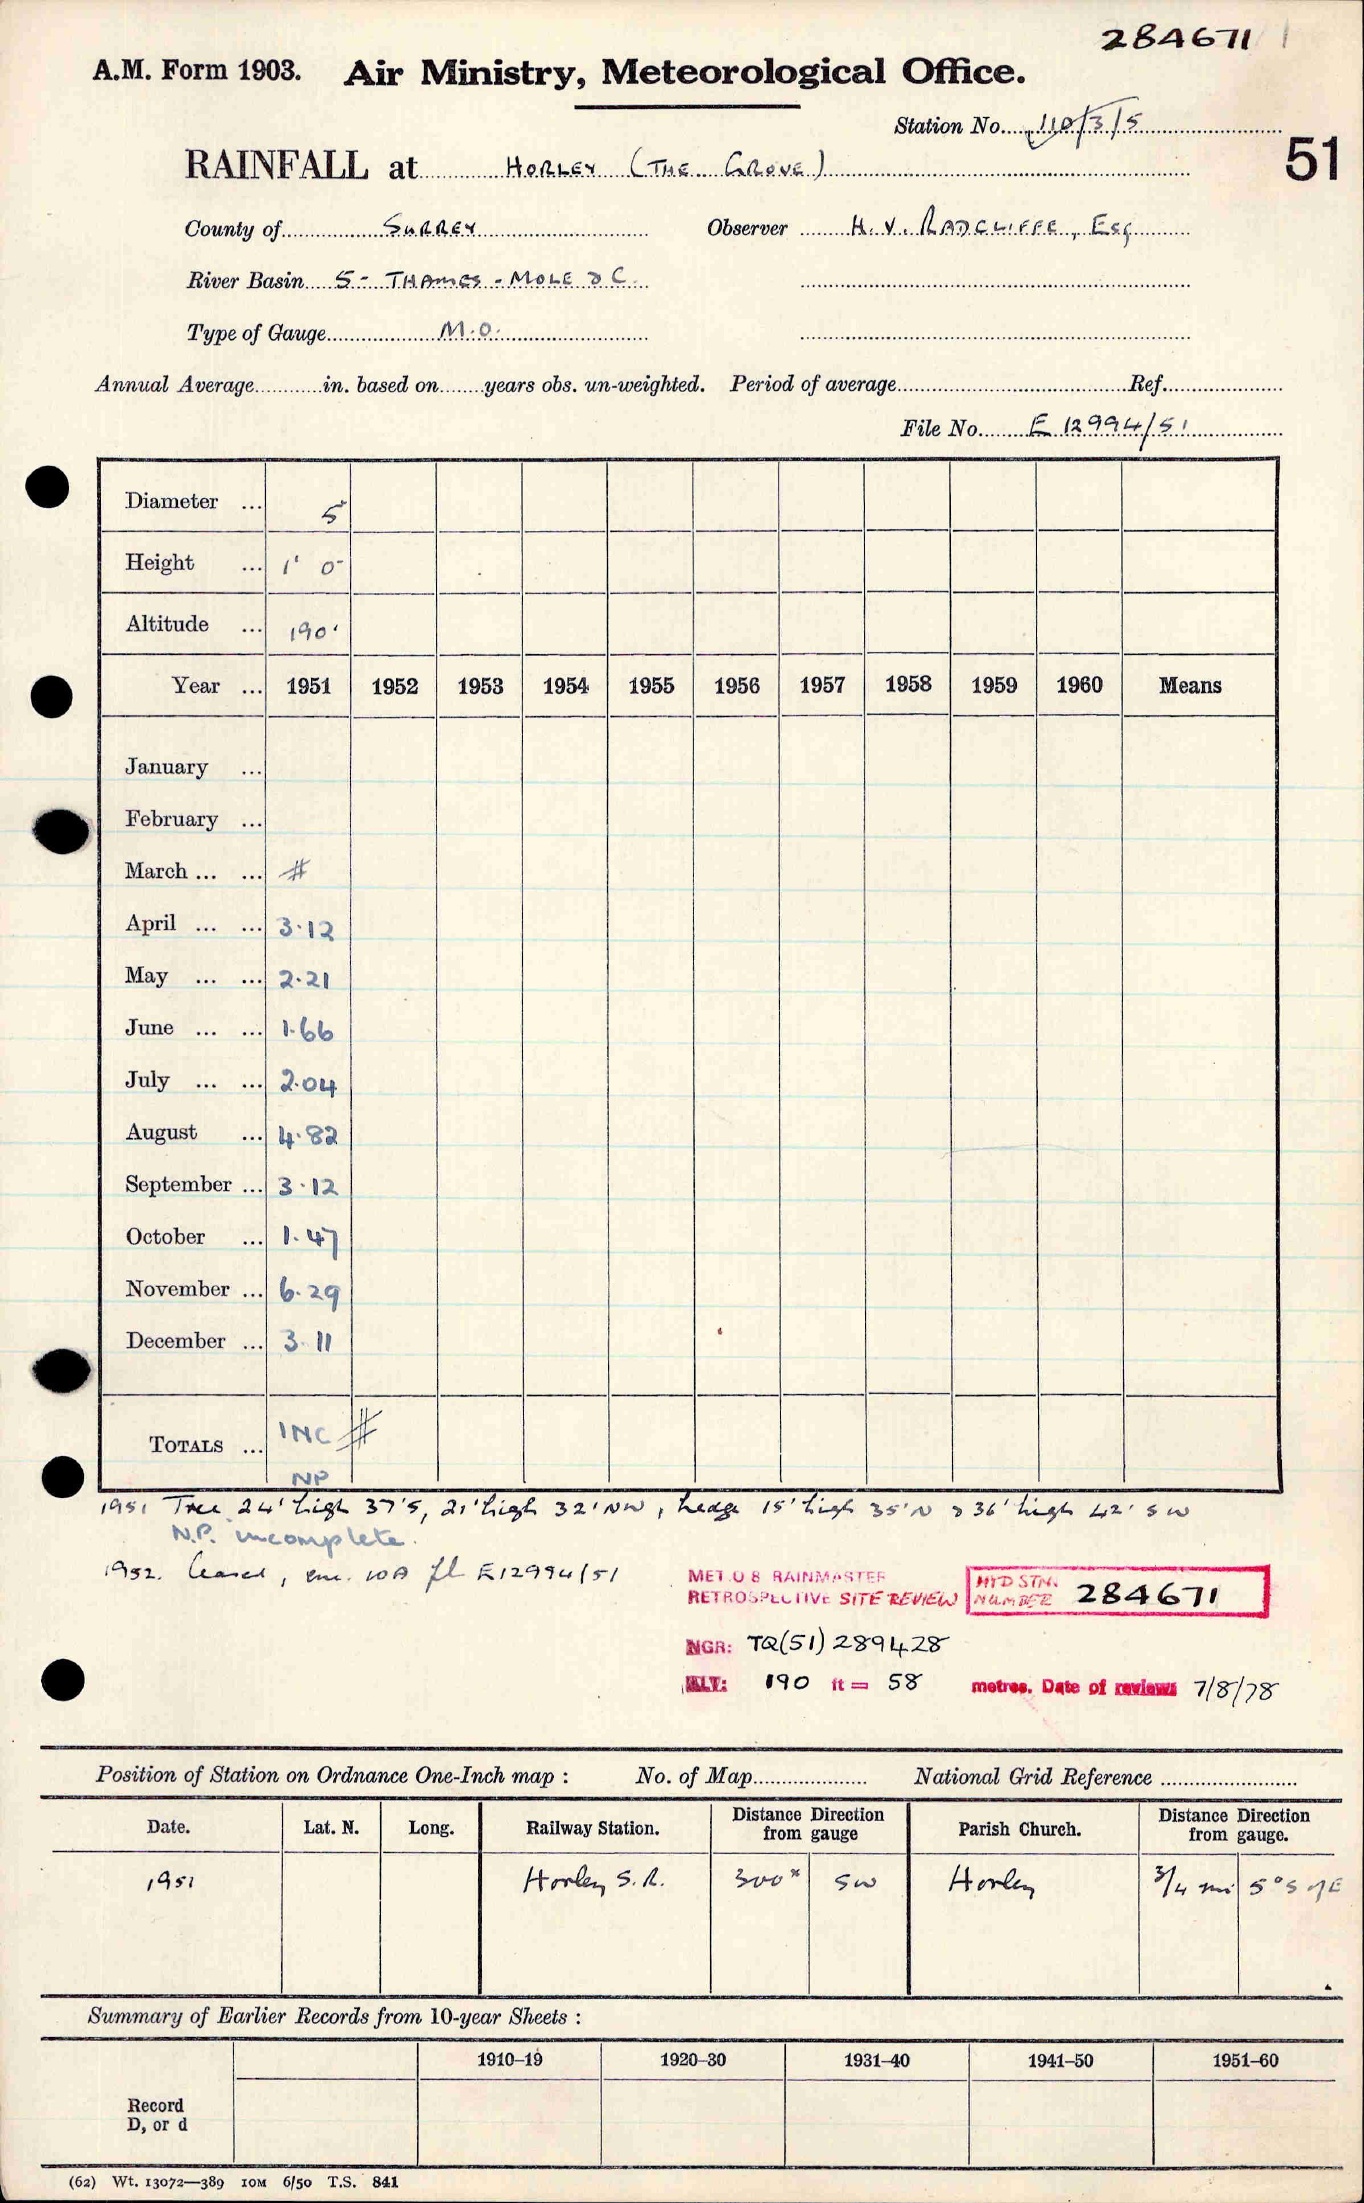 284671
A.M. Form 1903. Air Ministry, Meteorological Office.
Station No. 110/3/5
51
RAINFALL at HORLEY (THE GROVE)
County of SURREY Observer H. V. RADCLIFFE, Esq
River Basin 5 - THAMES - MOLE & C.
Type of Gauge M.O.
Annual Average in. based on years obs. un-weighted. Period of average Ref.
File No. E 12994/51
Diameter ... 5"
Height ... 1' 0"
Altitude ... 190'
Year ... 1951 1952 1953 1954 1955 1956 1957 1958 1959 1960 Means
January ...
February ...
March ... ... #
April ... ... 3.12
May ... ... 2.21
June ... ... 1.66
July ... ... 2.04
August ... 4.82
September ... 3.12
October ... 1.47
November ... 6.29
December ... 3.11
TOTALS ... INC #
NP
1951 Tree 24' high 37' S, 21' high 32' NW, hedge 15' high 35' N & 36' high 42' SW
N.P. incomplete.
1952. Ceased, E12994/51
MET.O 8 RAINMASTER
RETROSPECTIVE SITE REVIEW
HYD STN. NUMBER 284671
NGR: TQ(51) 289428
ALT: 190 ft = 58 metres. Date of review 7/8/78
Position of Station on Ordnance One-Inch map : No. of Map National Grid Reference
Date. Lat. N. Long. Railway Station. Distance Direction from gauge Parish Church. Distance Direction from gauge.
1951 Horley S.R. 300x SW Horley 3/4 mi 5° S of E
Summary of Earlier Records from 10-year Sheets :
1910–19 1920–30 1931–40 1941–50 1951–60
Record
D, or d
(62) Wt. 13072—389 10M 6/50 T.S. 841